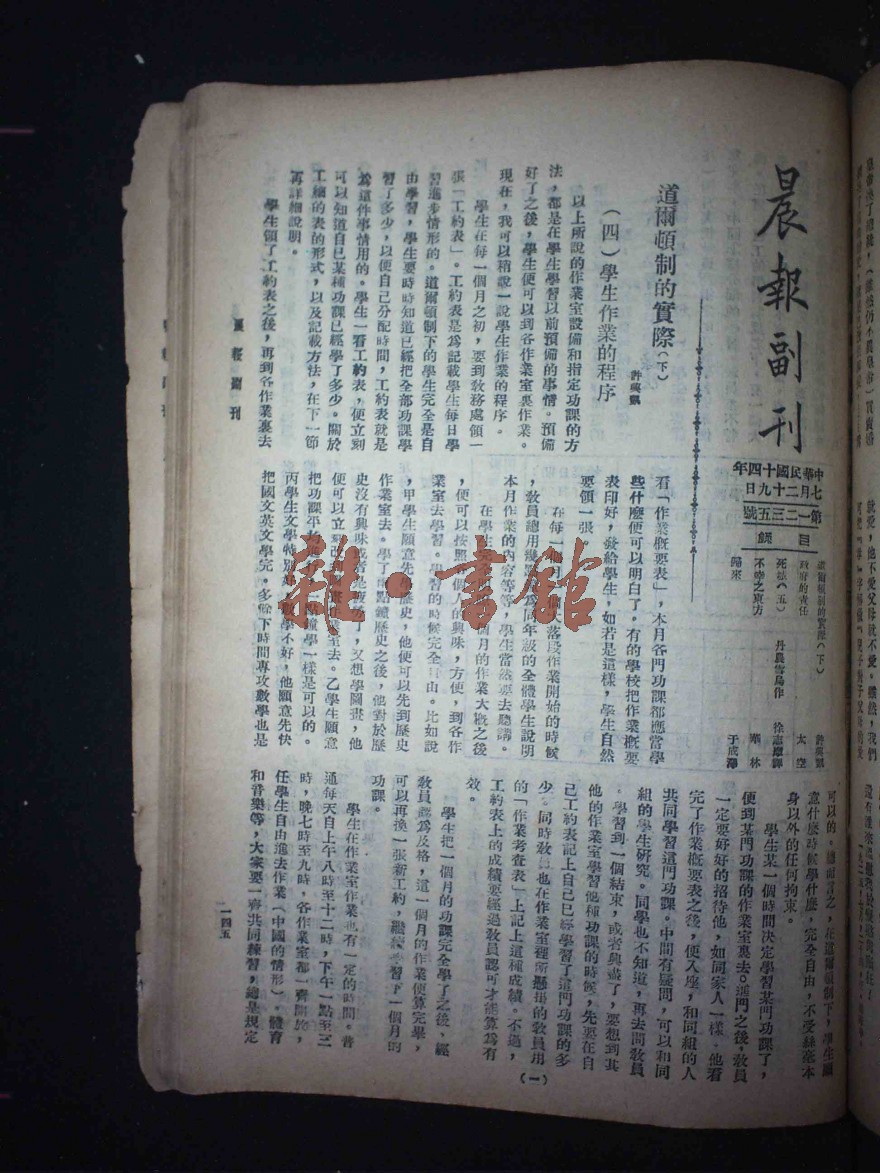 晨報副刊
中華民國十四年
七月二十九日
第一二三五號
目錄
道爾頓制的實際(下)
許興凱
政府的責任
太空
死城(五)
丹農雪烏作
徐志摩譯
不嘩之東方
華林
歸來
于成澤
道爾頓制的實際(下)
許興凱
(四)學生作業的程序
以上所說的作業室設備和指定功課的方
法,都是在學生學習以前預備的事情。預備
好了之後,學生便可以到各作業室裏作業。
現在,我可以稍說一說學生作業的程序。
學生在每一個月之初,要到教務處領一
張「工約表」。工約表是為記載學生每日學
習進步情形的。道爾頓制下的學生完全是自
由學習,學生要時時知道已經把全部功課學
習了多少,以便自己分配時間,工約表就是
為這件事情用的。學生一看工約表,便立刻
可以知道自己某種功課已經學了多少。關於
工約的表的形式,以及記載方法,在下一節
再詳細說明。
學生領了工約表之後,再到各作業裏去
看「作業概要表」,本月各門功課都應當學
些什麼便可以明白了。有的學校把作業概要
表印好,發給學生,如若是這樣,學生自然
要領一張。
在每一個月一個大落段作業開始的時候
,教員總用幾點鐘為同年級的全體學生說明
本月作業的內容等等,學生當然要去聽講。
在學生完全明一個月的作業大概之後
,便可以按照個人的興味,方便,到各作
業室去學習。學習的時候完全自由。比如說
,甲學生願意先作歷史,他便可以先到歷史
作業室去。學了兩點鐘歷史之後,他對於歷
史沒有興味或者是疲勞了,又想學圖畫,他
便可以立刻改到圖畫作業室去。乙學生願意
把功課平均進行,一點鐘學一樣是可以的。
丙學生文學特別好,數學不好,他願意先快
把國文英文學完。多餘下時間專攻數學也是
可以的。總而言之,在道爾頓制下,學生願
意什麼時候學什麼,完全自由,不受絲毫本
身以外的任何拘束。
學生某一個時間決定學習某門功課了,
便到某門功課的作業室裏去。進門之後,教員
一定要好好的招待他,如同家人一樣。他看
完了作業概要表之後,便入座,和同組的人
共同學習這門功課。中間有疑問,可以和同
組的學生研究。同學也不知道,再去問教員
。學習到一個結束,或者興盡了,要想到其
他的作業室學習他種功課的時候,先要在自
己工約表記上自己已經學習了這門功課的多
少。同時教員也在作業室裡所懸掛的教員用
的「作業考查表」上記上這種成績。不過,
工約表上的成績要經過教員認可才能算為有
效。
學生把一個月的功課完全學了之後、經
教員認為及格,這一個月的作業便算完畢,
可以再換一張新工約,繼續學習下一個月的
功課。
學生在作業室作業也有一定的時間。普
通每天自上午八時至十二時,下午一點至三
時,晚七時至九時,各作業室都一齊開放,
任學生自由進去作業(中國的情形)。體育
和音樂等,大家要一齊共同練習,總是規定
(一)
晨報副刊
一四五
雜·書館